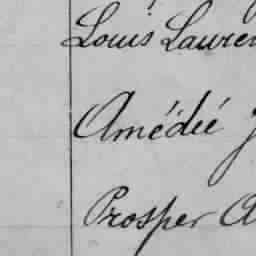 Louis Lauren
Amédié
Prosper A